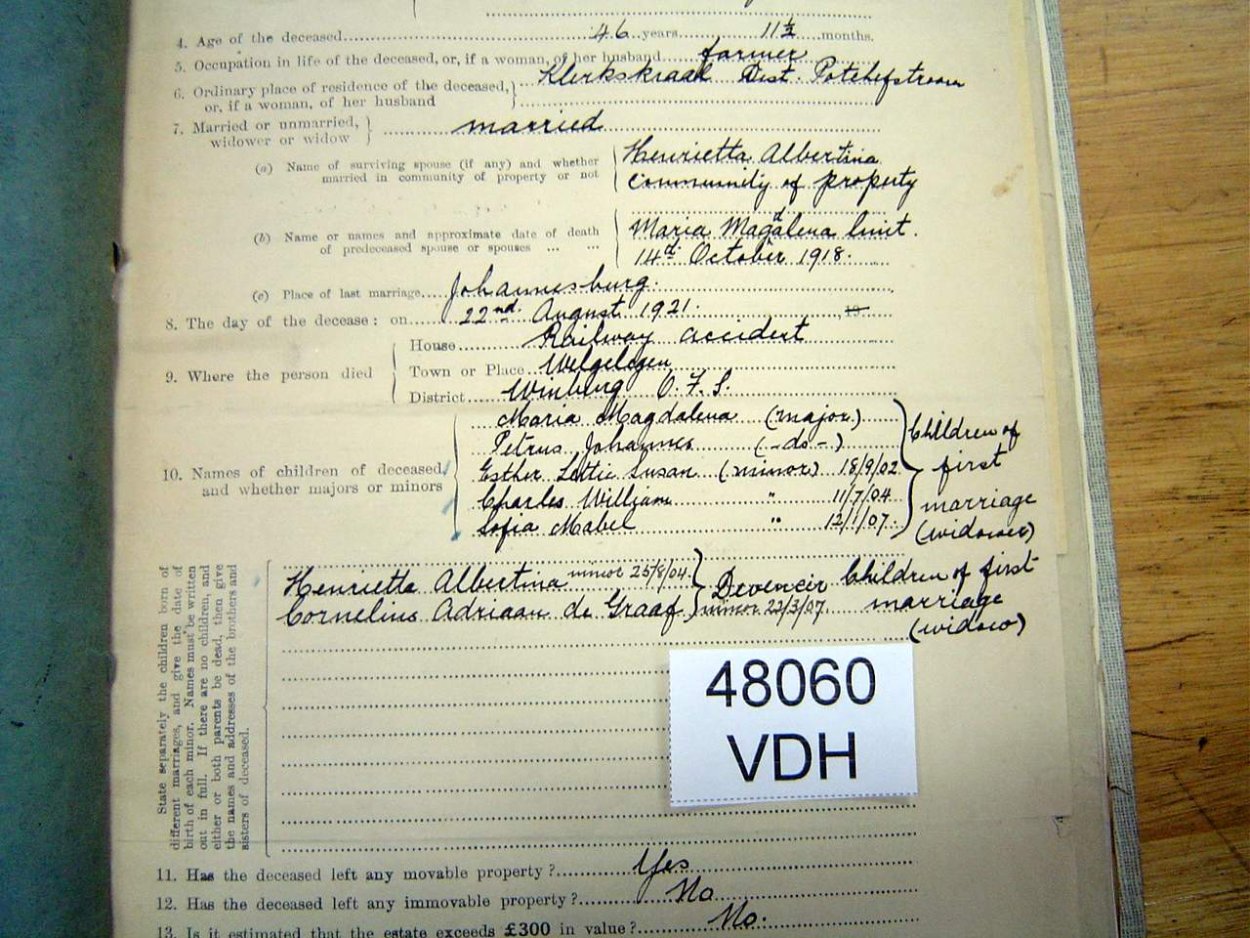 4. Age of the deceased 46 years 11½ months.
5. Occupation in life of the deceased, or, if a woman, of her husband farmer
6. Ordinary place of residence of the deceased, Klerkskraal Dist. Potchefstroom
or, if a woman, of her husband
7. Married or unmarried, married
widower or widow
(a) Name of surviving spouse (if any) and whether Henrietta Albertina
married in community of property or not Community of property
(b) Name or names and approximate date of death Maria Magdalena Smit.
of predeceased spouse or spouses ... ... 14th October 1918.
(c) Place of last marriage Johannesburg.
8. The day of the decease: on 22nd. August 1921. 19
House Railway accident
9. Where the person died Town or Place Welgelegen
District Winburg O.F.S.
Maria Magdalena (major)
Petrus Johannes (-do-)
10. Names of children of deceased, Esther Lettie Susan (minor) 18/9/02
and whether majors or minors Charles William " 11/7/04
Sofia Mabel " 12/1/07.
Children of
first
marriage
(widower)
State separately the children born of
different marriages, and give the date of
birth of each minor. Names must be written
out in full. If there are no children, and
either or both parents be dead, then give
the names and addresses of the brothers and
sisters of deceased.
Henrietta Albertina minor 25/8/04 Children of first
Cornelius Adriaan de Graaf minor 22/3/07. marriage
(widow)
48060
VDH
11. Has the deceased left any movable property? Yes
12. Has the deceased left any immovable property? No
13. Is it estimated that the estate exceeds £300 in value? No.